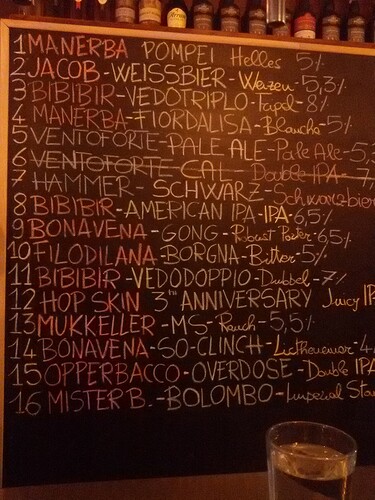 1 MANERBA POMPEI Helles 5%
2 JACOB-WEISSBIER-Weizen-5,3%
3 BIBIBIR-VEDOTRIPLO-Tripel-8%
4 MANERBA-FIORDALISA-Blanche-5%
5 VENTOFORTE-PALE ALE-Pale Ale-5,
6 VENTOFORTE CAL Double IPA-7,
7 HAMMER-SCHWARZ-Schwarzbier
8 BIBIBIR-AMERICAN IPA-IPA-6,5%
9 BONAVENA-GONG-Robust Porter-6,5%
10 FILODILANA-BORGNA-Bitter-5%
11 BIBIBIR-VEDODOPPIO-Dubbel-7%
12 HOP SKIN 3TH ANNIVERSARY Juicy IP
13 MUKKELLER-MS-Rauch-5,5%
14 BONAVENA-SO-CLINCH-4,
15 OPPERBACCO-OVERDOSE-Double IPA
16 MISTER B.-BOLOMBO-Imperial Stou